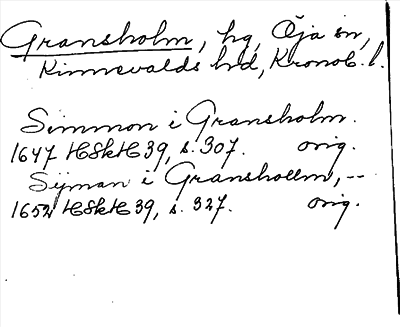 Gransholm, hg, Öja sn,
Kinnevalds hd, Kronob. l.
Simmon i Gransholm.
1647 HSkH 39, s. 307. orig.
Sijman i Granshollm, --
1652 HSkH 39, s. 327. orig.